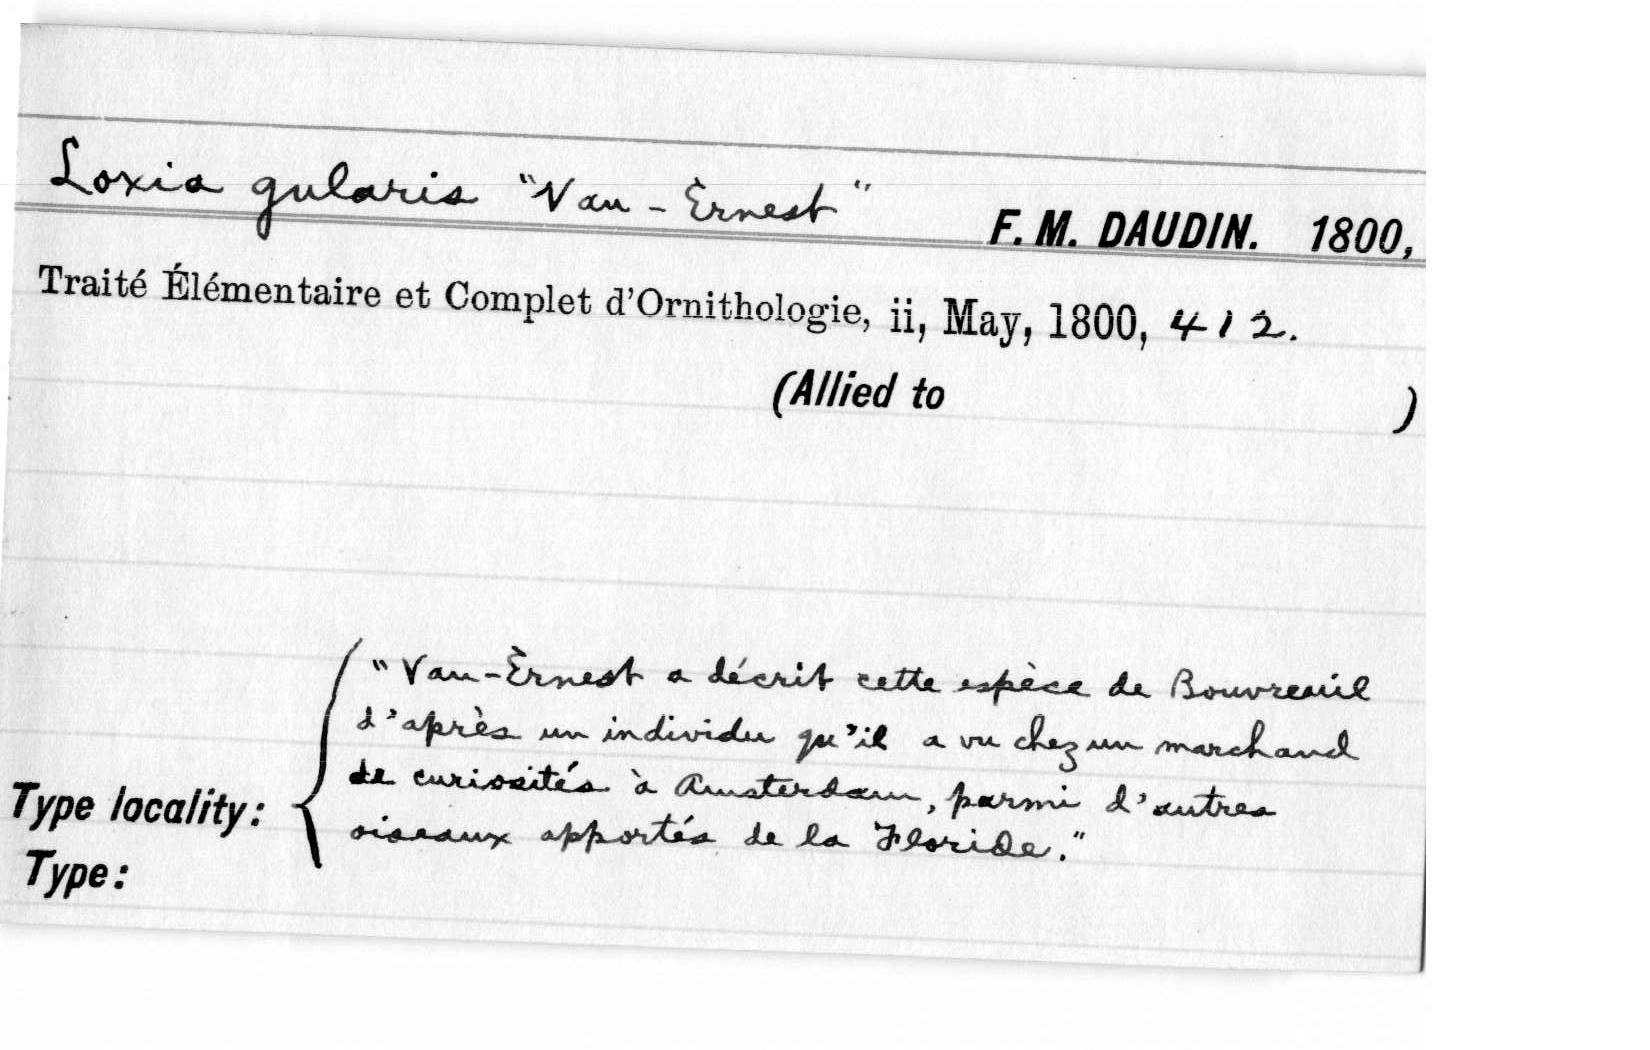 Loxia gularis "Van-Èrnest" F. M. DAUDIN. 1800,
Traité Élémentaire et Complet d'Ornithologie, ii, May, 1800, 412.
(Allied to )
"Van-Èrnest a décrit cette espèce de Bouvreuil
d'après un individu qu'il a vu chez un marchand
de curiosités à Amsterdam, parmi d'autres
Type locality: oiseaux apportés de la Floride."
Type: